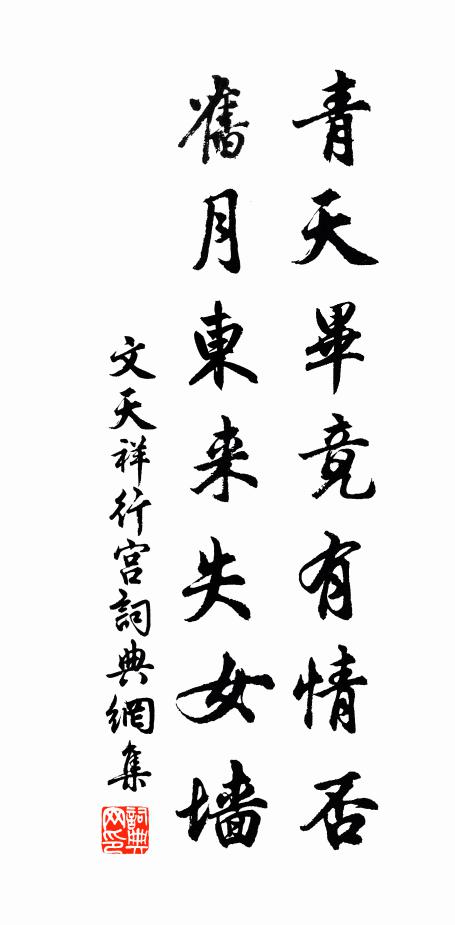 青天畢竟有情否
舊月東来失女墙
文天祥行宫詞典網集
詞典网印